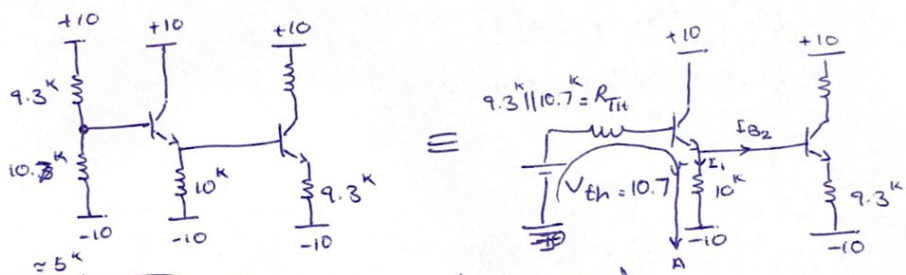 +10 +10 +10
9.3K
10.7K
10K
9.3K
-10 -10 -10
≈ 5K
≡
+10 +10
9.3K || 10.7K = RTH
IB2
I1
Vth = 10.7
10K
9.3K
-10 -10
A